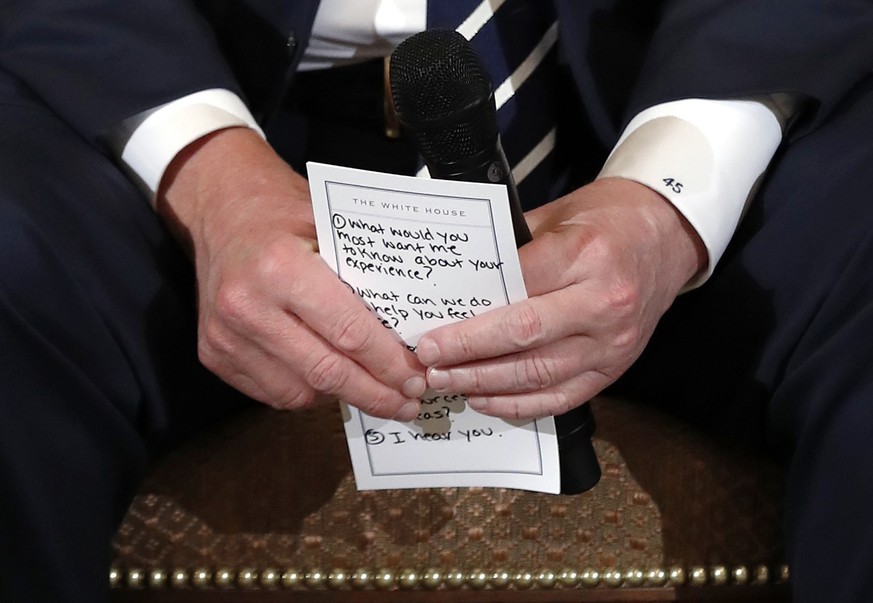 THE WHITE HOUSE
① What would you
most want me
to know about your
experience?
What can we do
help you feel
45
⑤ I hear you.